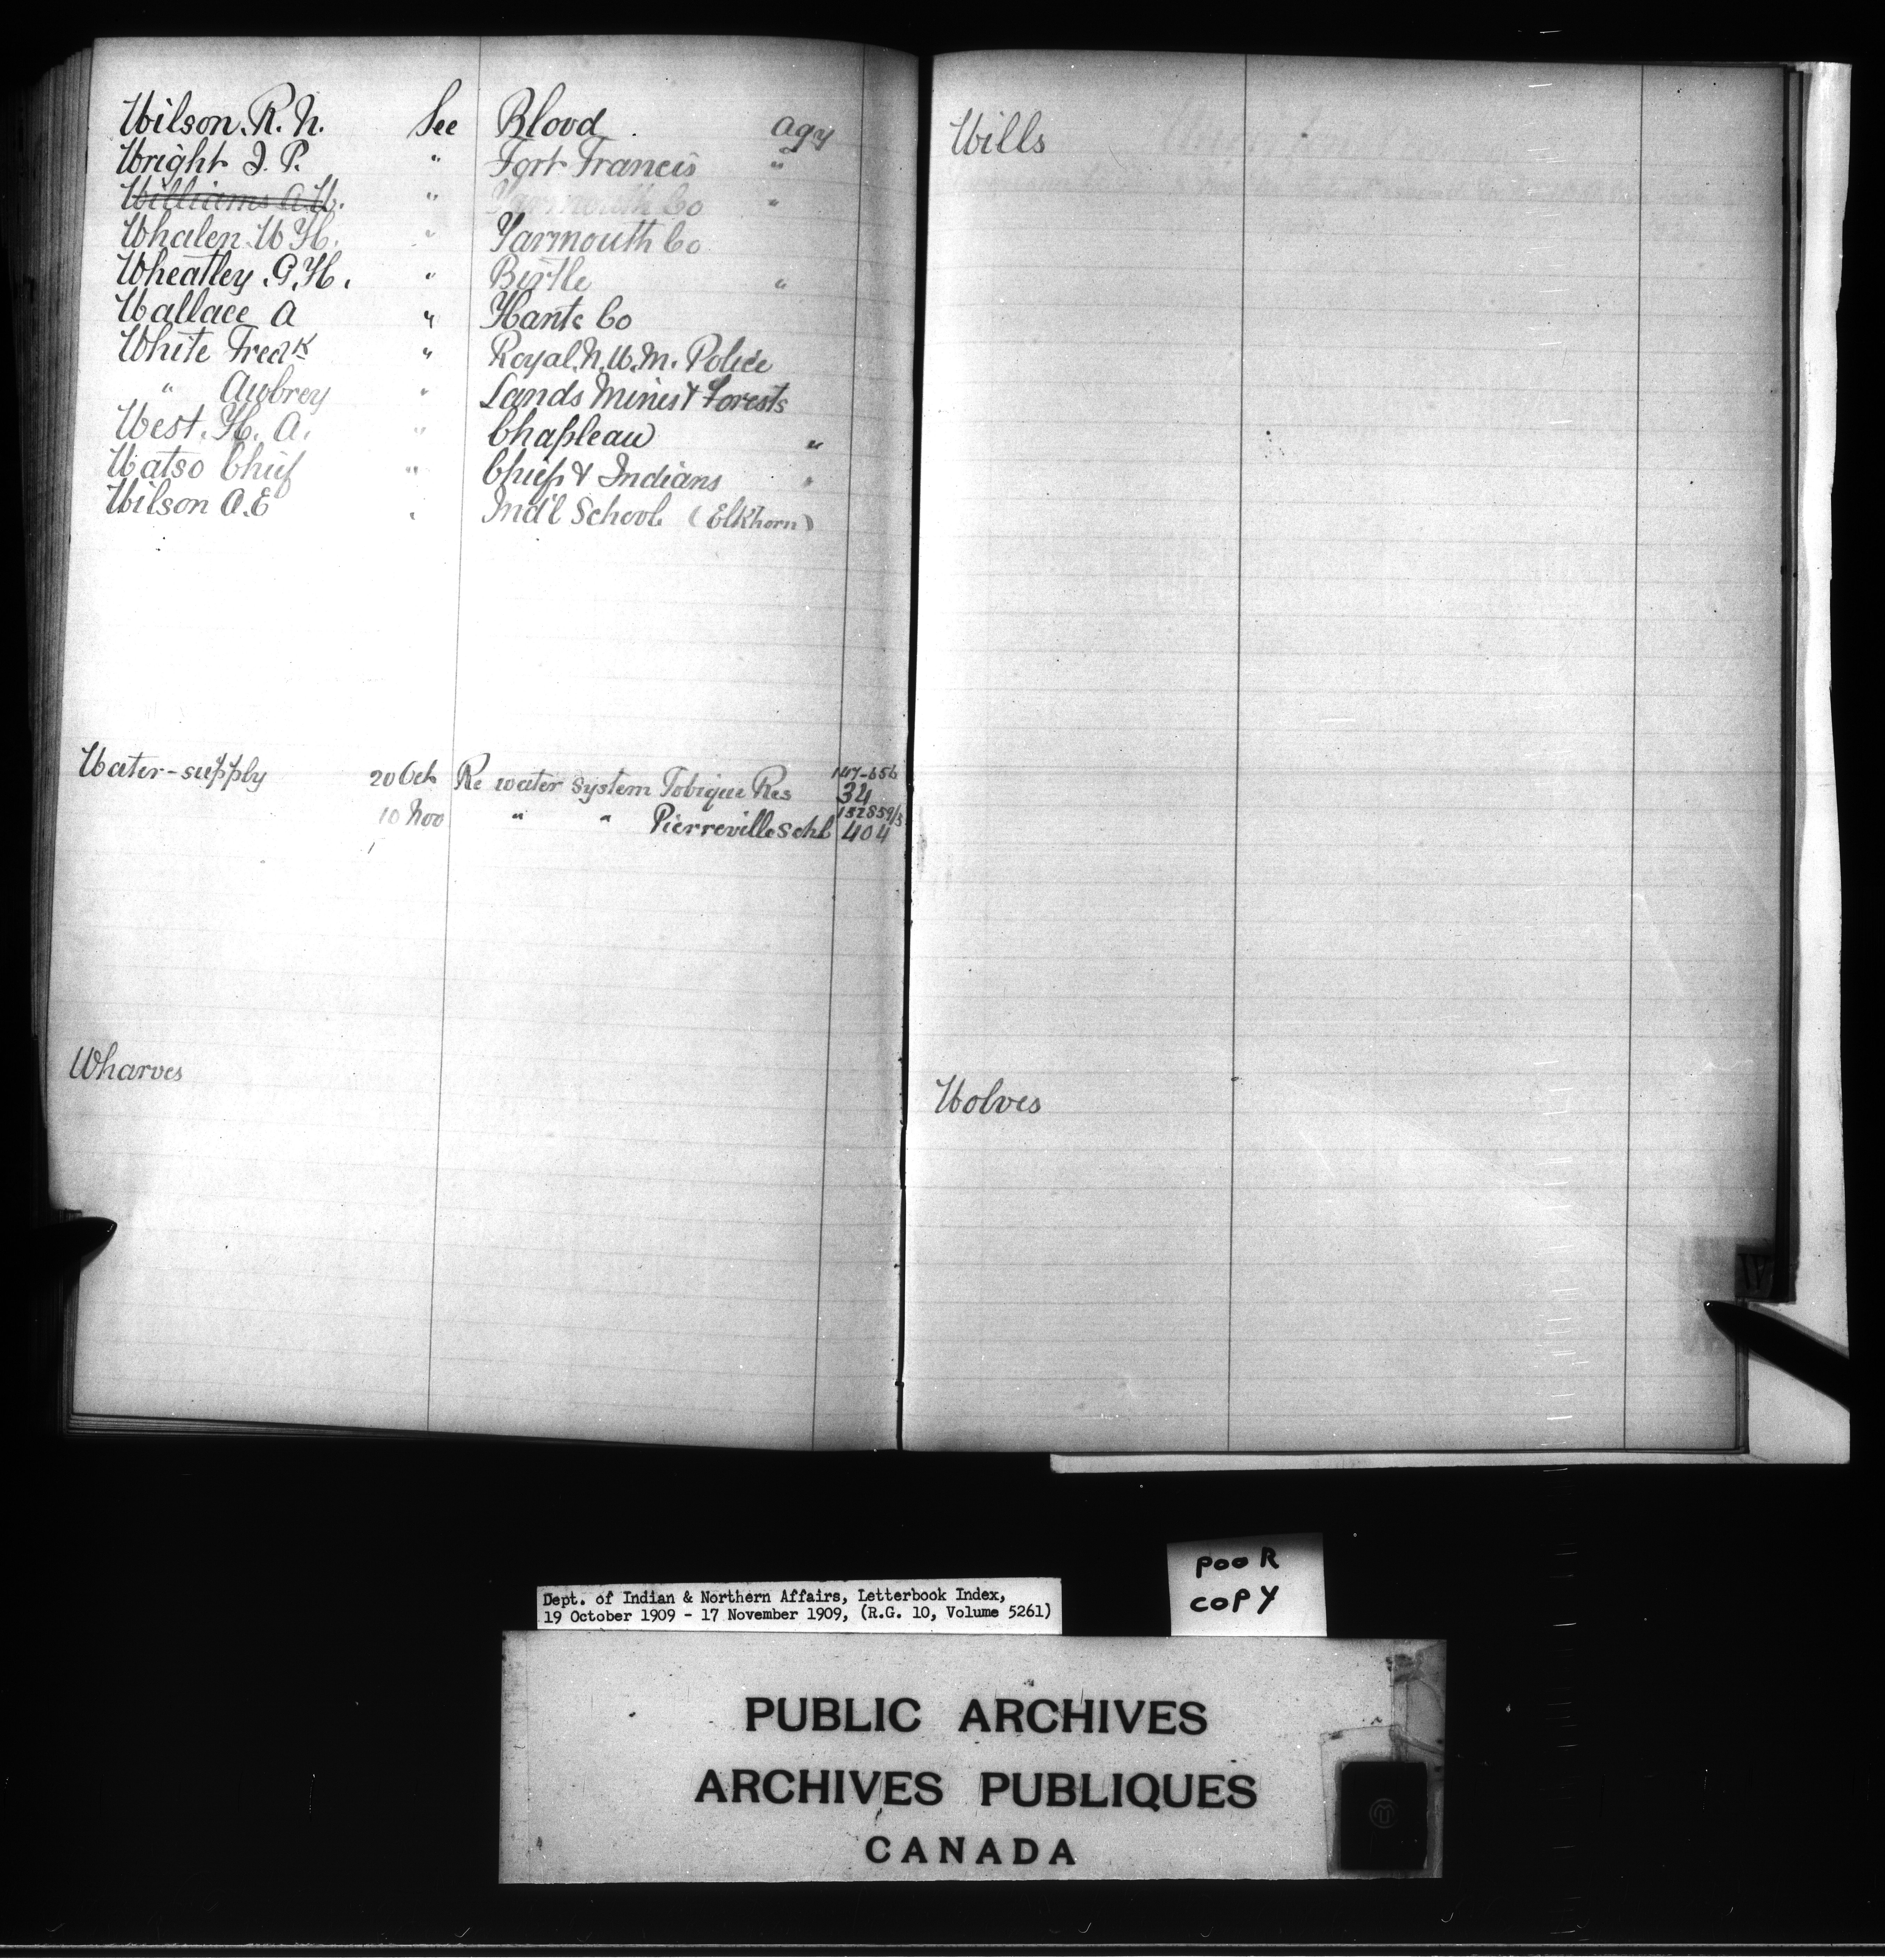 Wilson. R. N. See Blood agy
Wright J. P. " Fort Francis "
Williams A.W. " Yarmouth Co "
Whalen W H. " Yarmouth Co
Wheatley. G. H. " Birtle "
Wallace A " Hants Co
White Fredk " Royal. N. W. M. Police
" Aubrey " Lands Mines & Forests
West. H. A. " Chapleau "
Watso Chief " Chiefs & Indians "
Wilson A.E " Ind'l School (Elkhorn)
Water-supply 20 Oct Re water system Tobique Res 34
10 Nov " " Pierreville schl 404
Wharves
Wills
Wolves
W
Poor
copy
Dept. of Indian & Northern Affairs, Letterbook Index,
19 October 1909 - 17 November 1909, (R.G. 10, Volume 5261)
PUBLIC ARCHIVES
ARCHIVES PUBLIQUES
CANADA